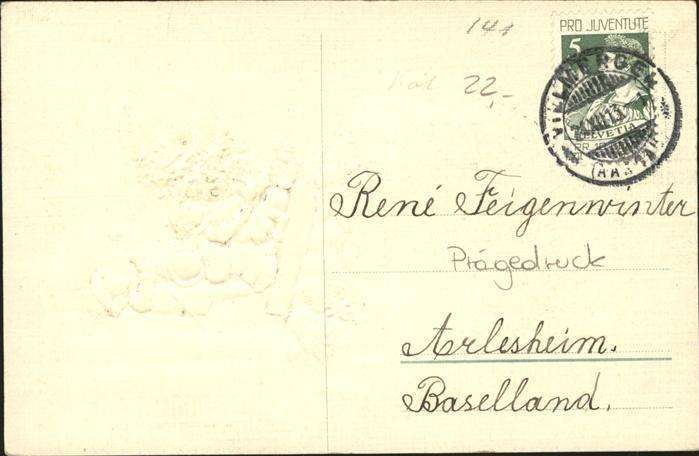 141
PRO JUVENTUTE
5
VILLMERGEN
HELVETIA
(AARGAU)
22,-
René Feigenwinter
Prägedruck
Arlesheim.
Baselland.